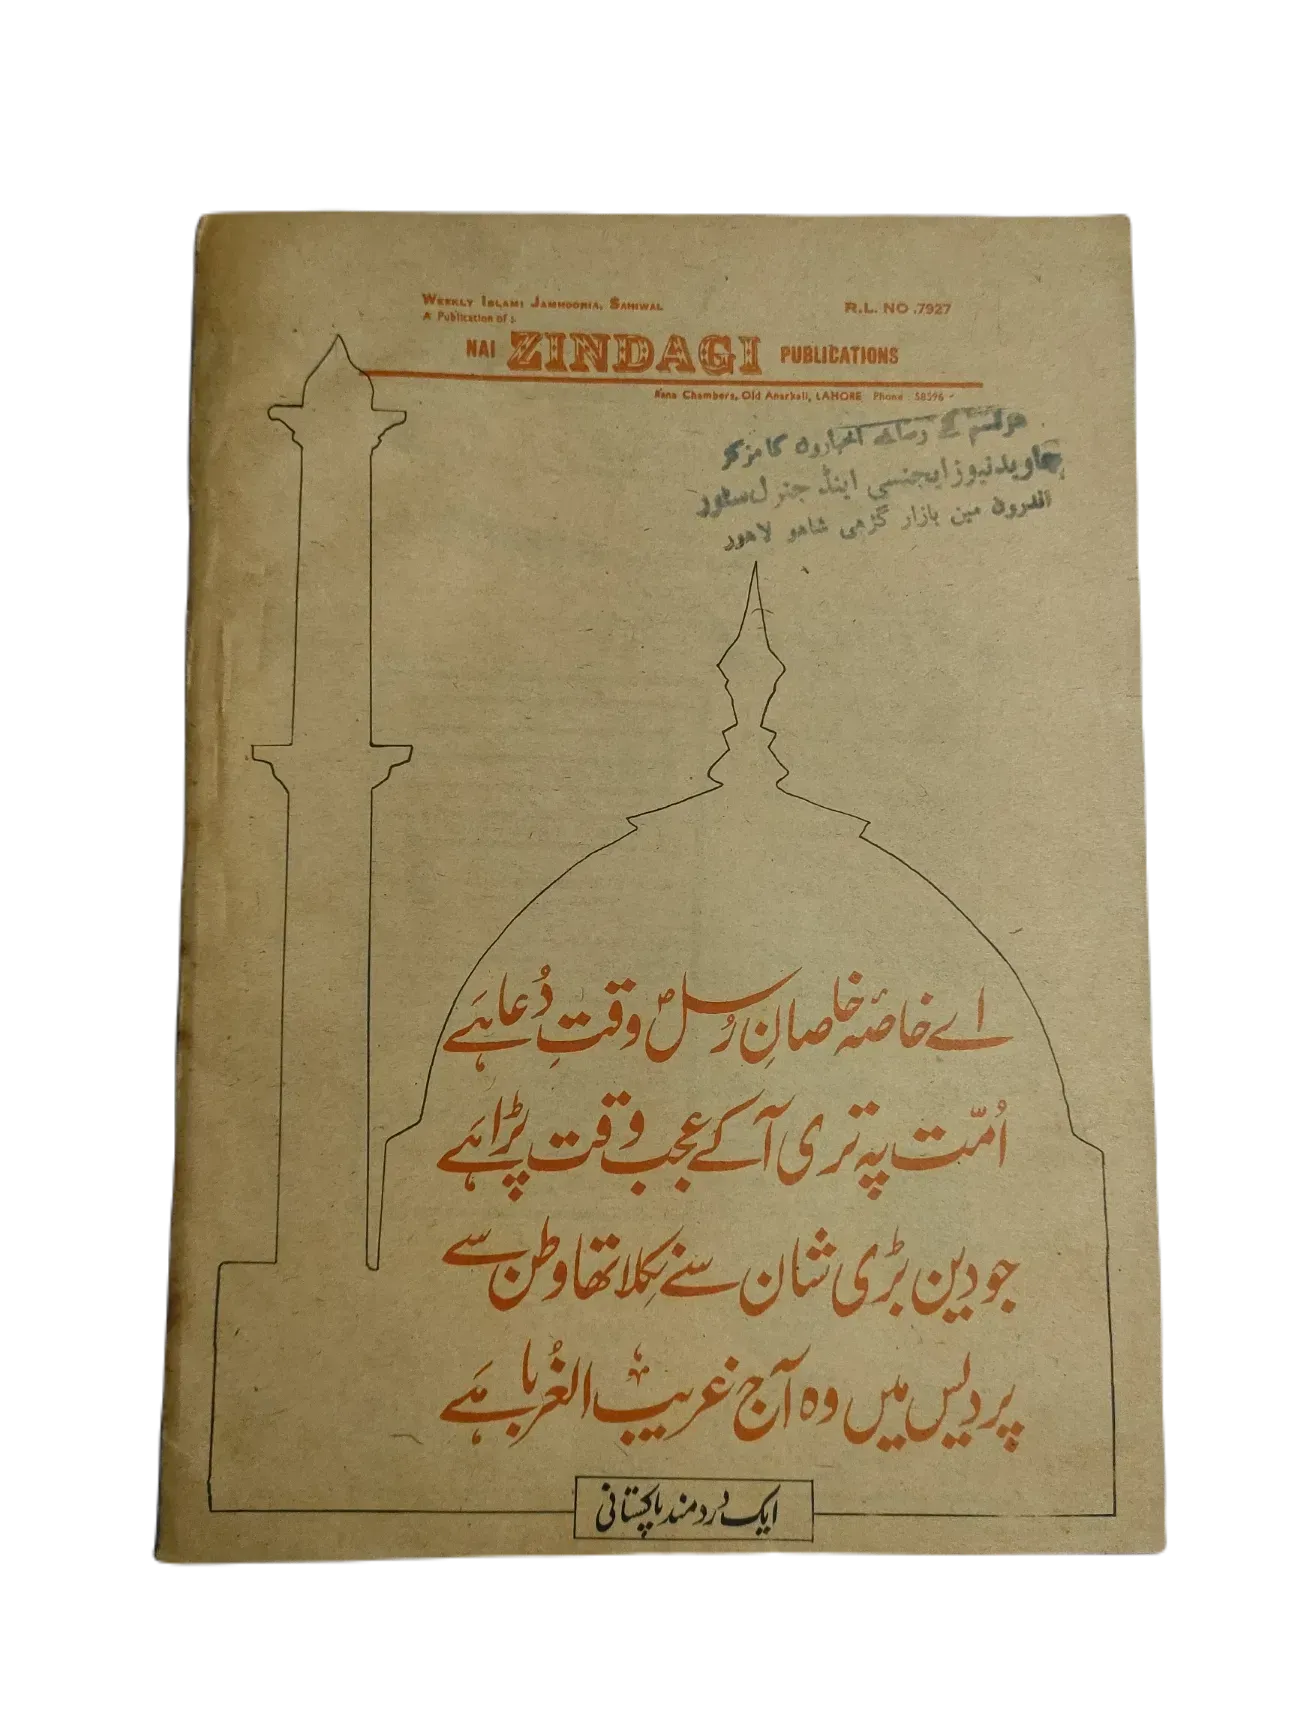 WEEKLY ISLAMI JAMHOORIA, SAHIWAL
R.L. NO .7927
A Publication of :
NAI ZINDAGI PUBLICATIONS
Rana Chambers, Old Anarkali, LAHORE Phone 58396
ہر قسم کے رسالے اخباروں کا مرکز
جاوید نیوز ایجنسی اینڈ جنرل سٹور
اندرون مین بازار گڑھی شاہو لاہور
اے خاصۂ خاصانِ رُسلؐ وقتِ دُعا ہے
اُمّت پہ تری آ کے عجب وقت پڑا ہے
جو دین بڑی شان سے نِکلا تھا وطن سے
پردیس میں وہ آج غریب الغُربا ہے
ایک دردمند پاکستانی